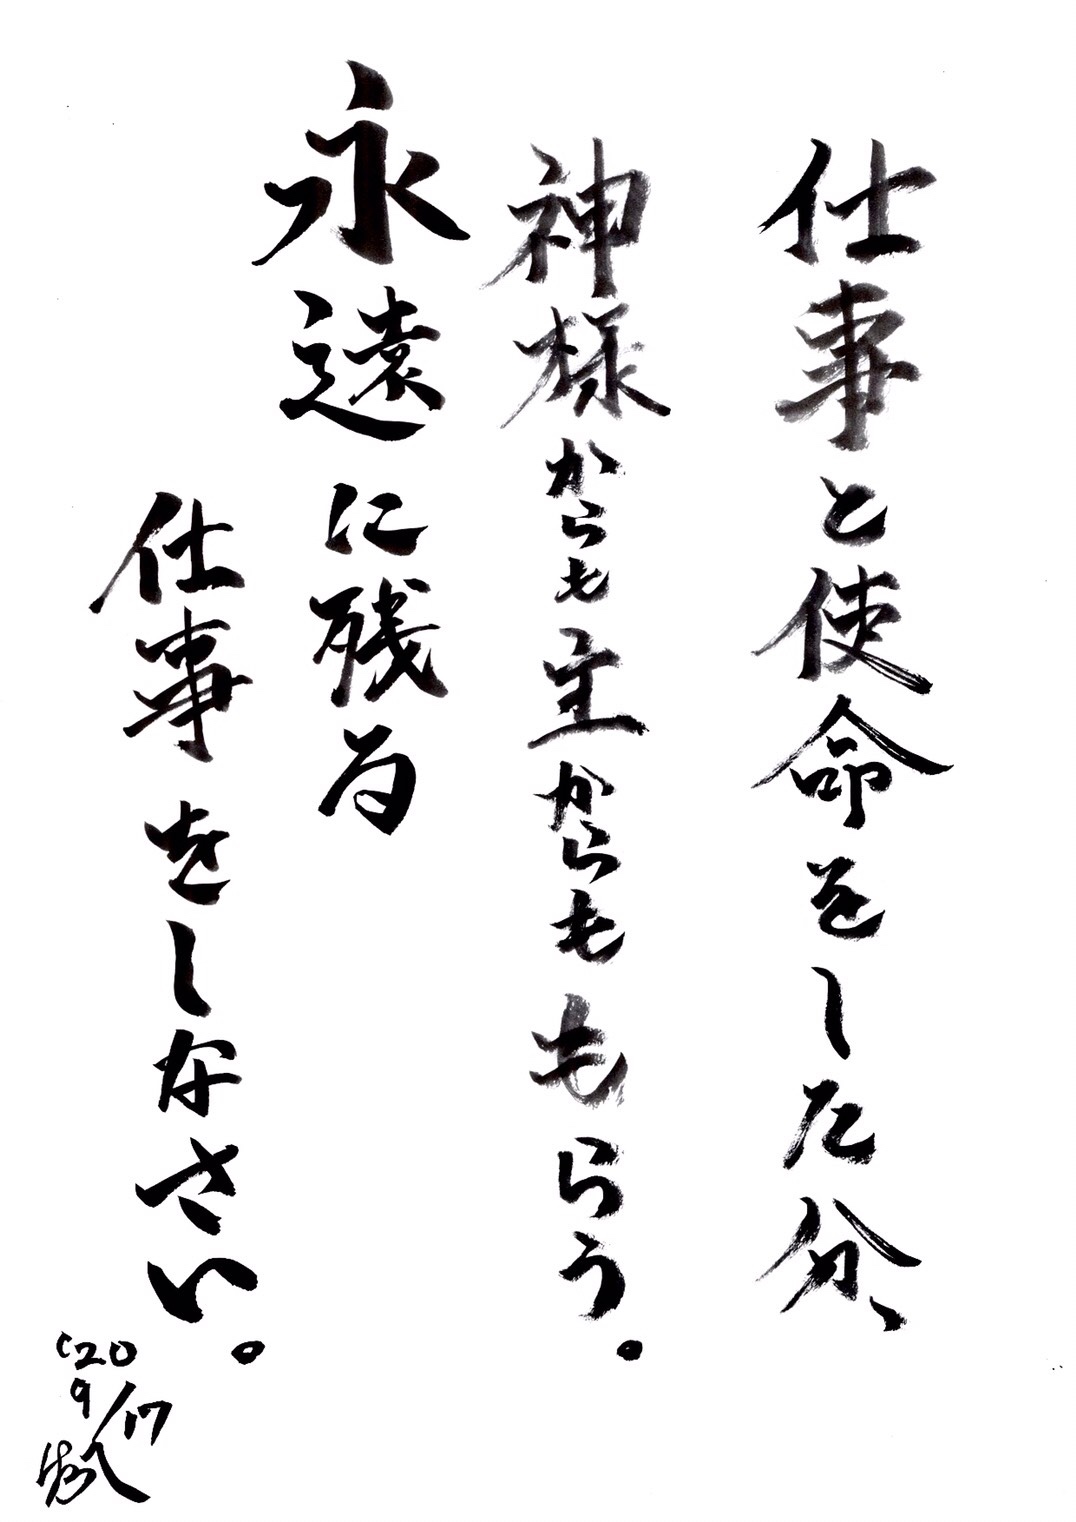 仕事と使命をした分、
神様からも主からももらう。
永遠に残る
仕事をしなさい。
'20
9/17